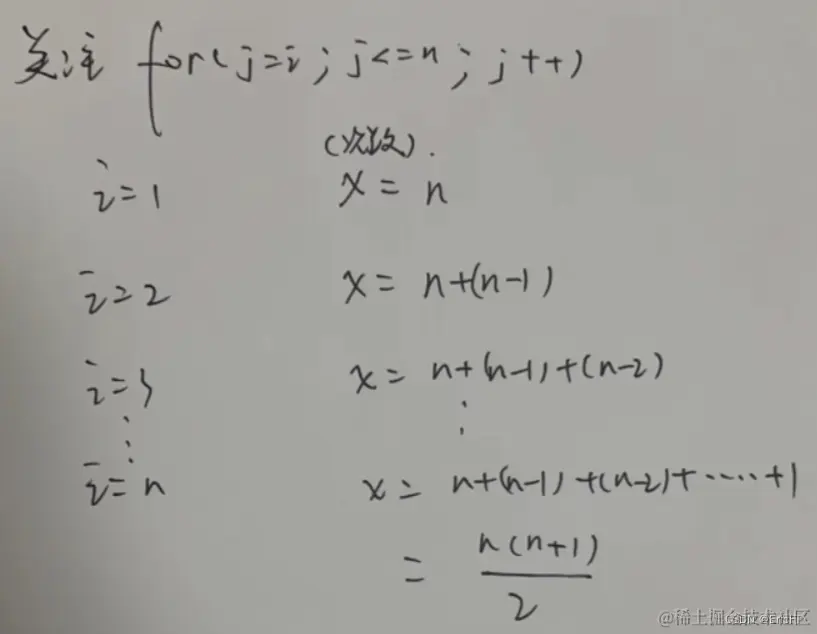 关注 for(j=i; j<=n; j++)
(次数).
i=1 x=n
i=2 x=n+(n-1)
i=3 x=n+(n-1)+(n-2)
⋮ ⋮
i=n x=n+(n-1)+(n-2)+·····+1
=n(n+1)/2
@稀土掘金技术社区